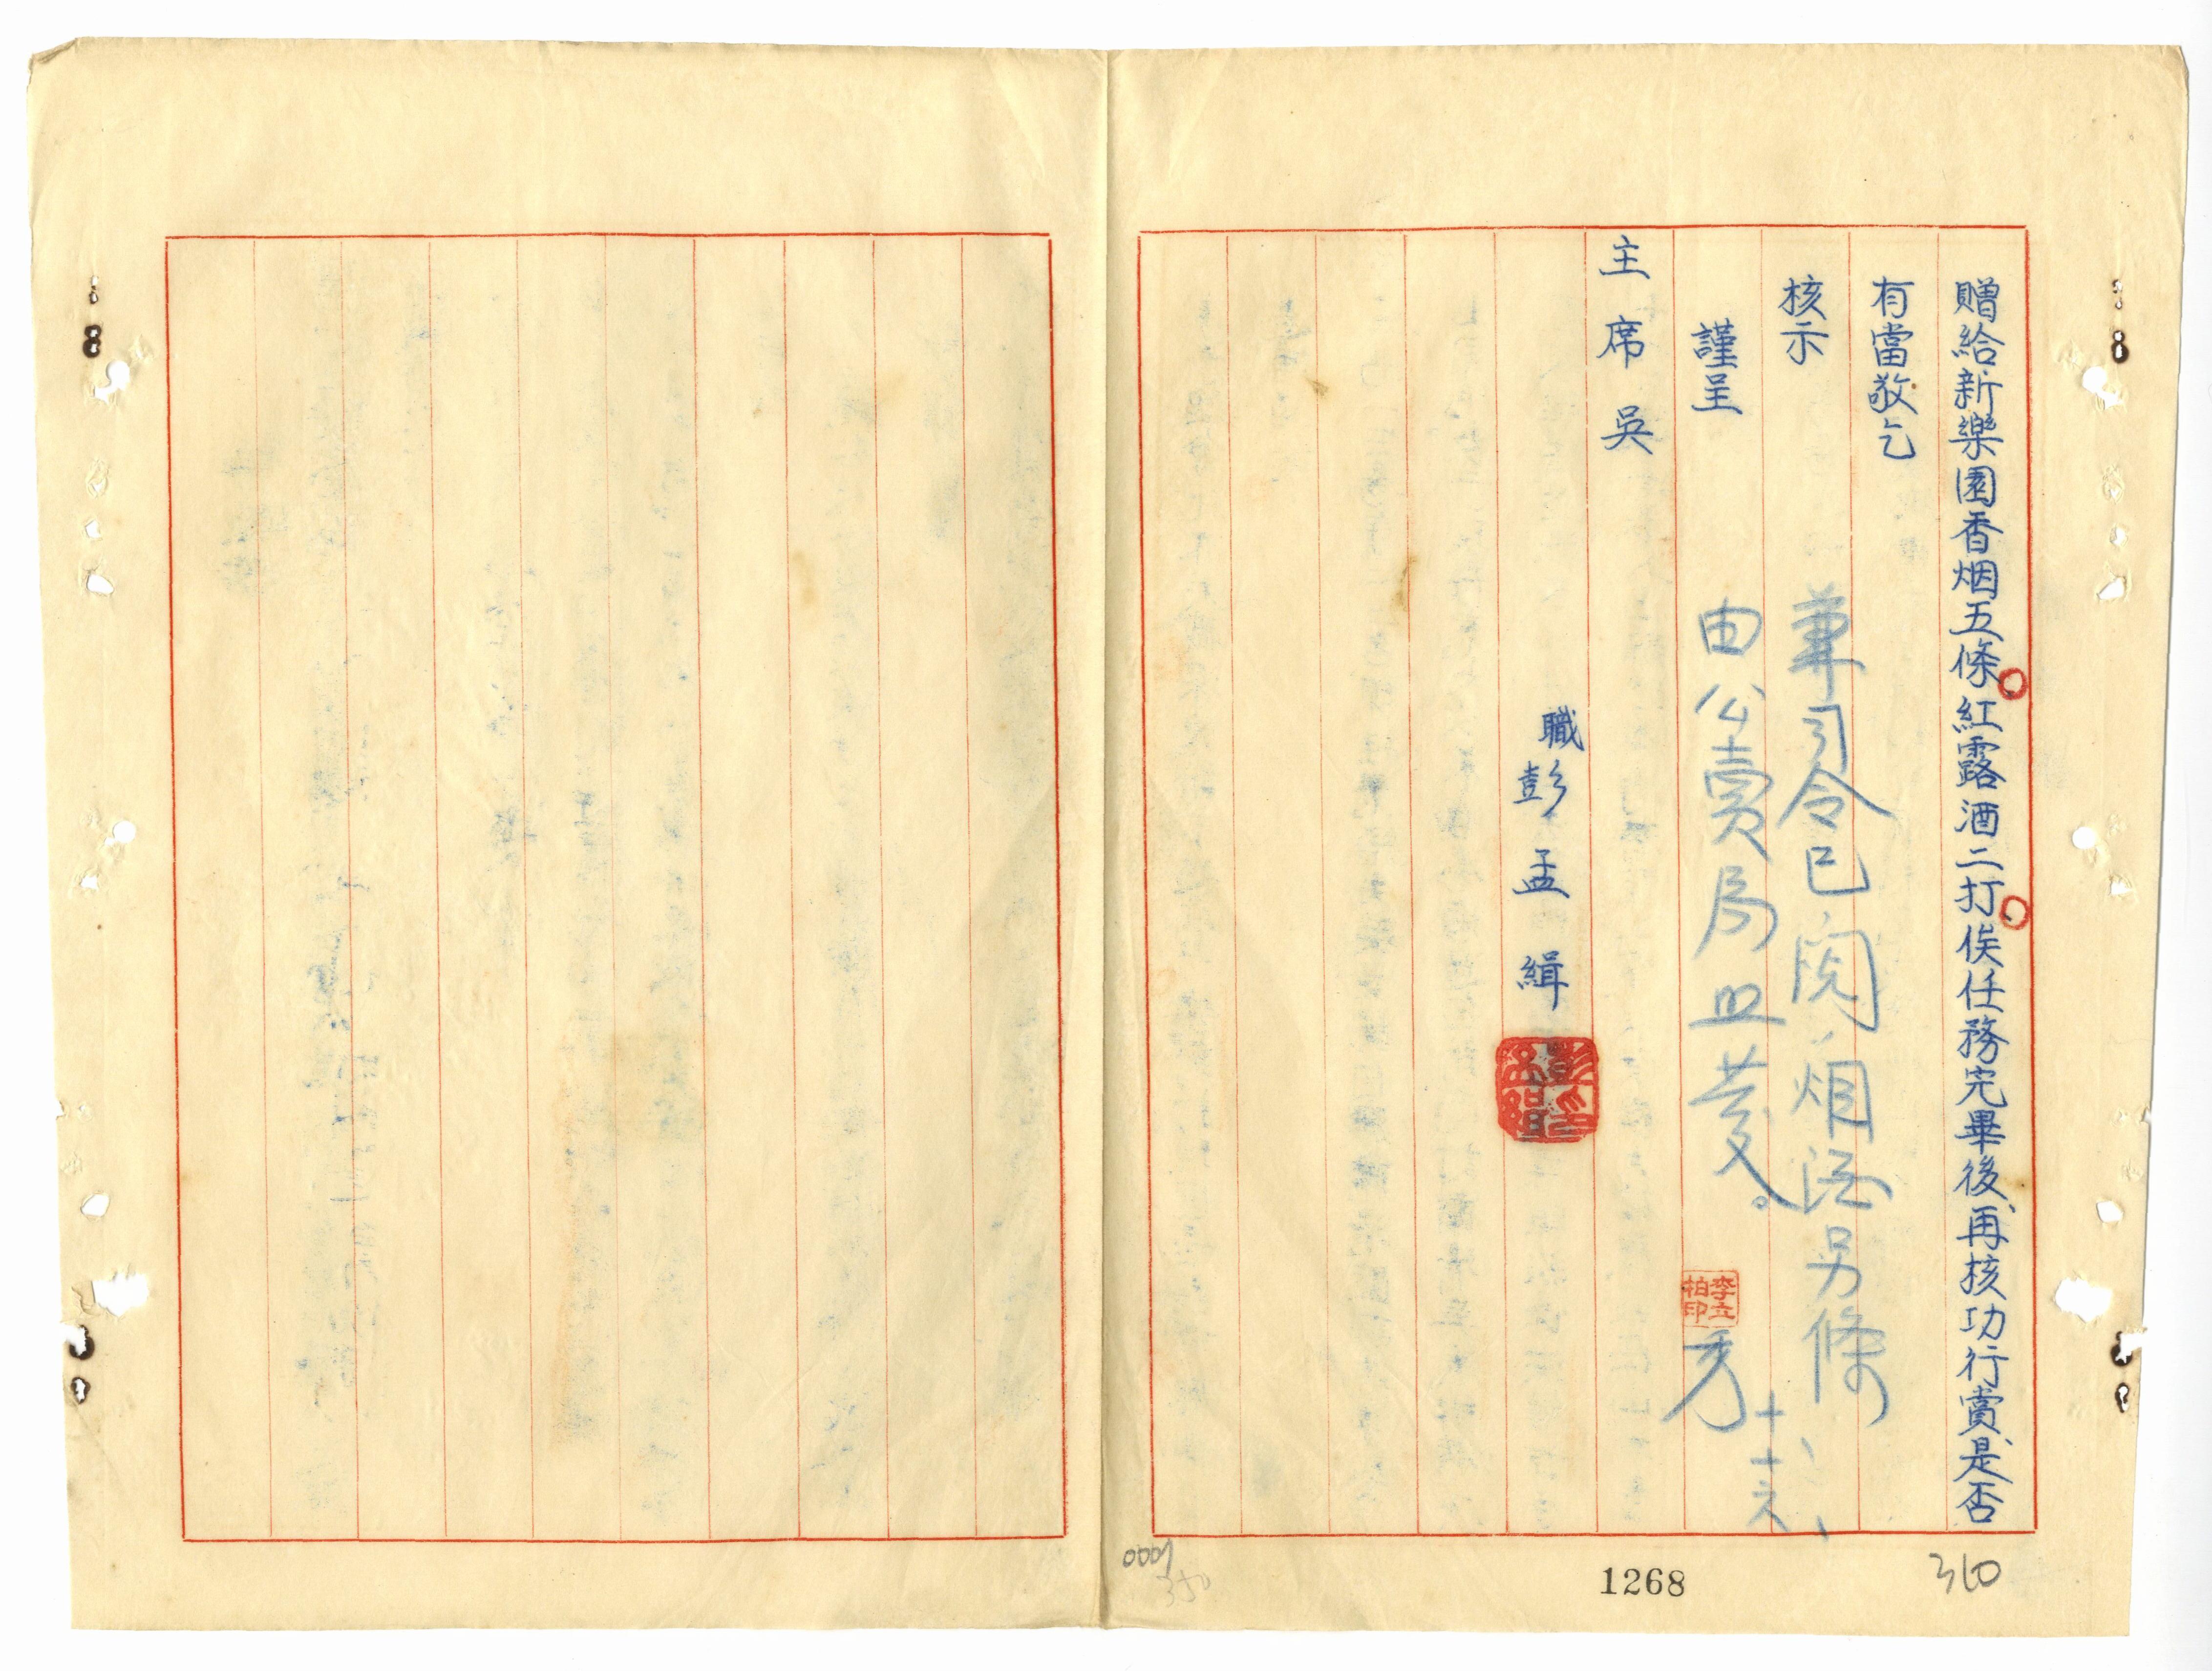 贈給新樂園香烟五條、紅露酒二打、俟任務完畢後、再核功行賞、是否
有當敬乞
核示
謹呈
主席吳
職彭孟緝
兼司令已閱、烟酒另條
由公賣局照發。
李立柏印
十
1268
310
0009
350